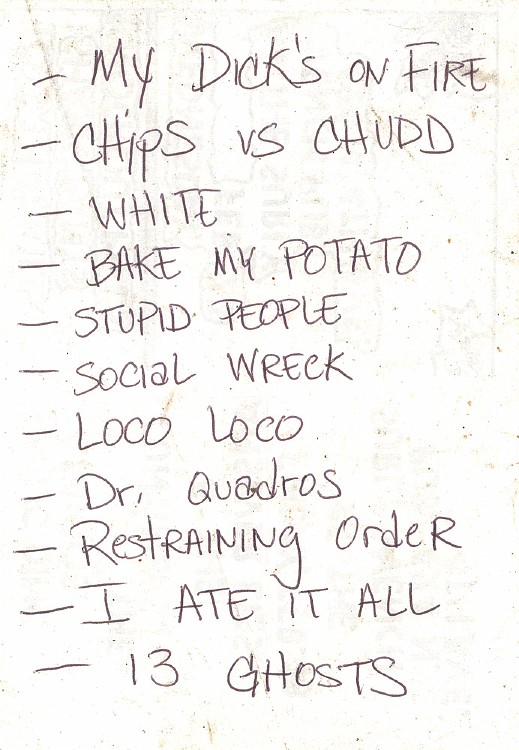 - My Dick's ON FIRE
- CHipS vs CHUDD
- WHITE
- BAKE MY POTATO
- STUPID PEOPLE
- Social WRECK
- Loco Loco
- Dr. Quadros
- RestRAINING OrdeR
- I ATE IT ALL
- 13 GHOSTS